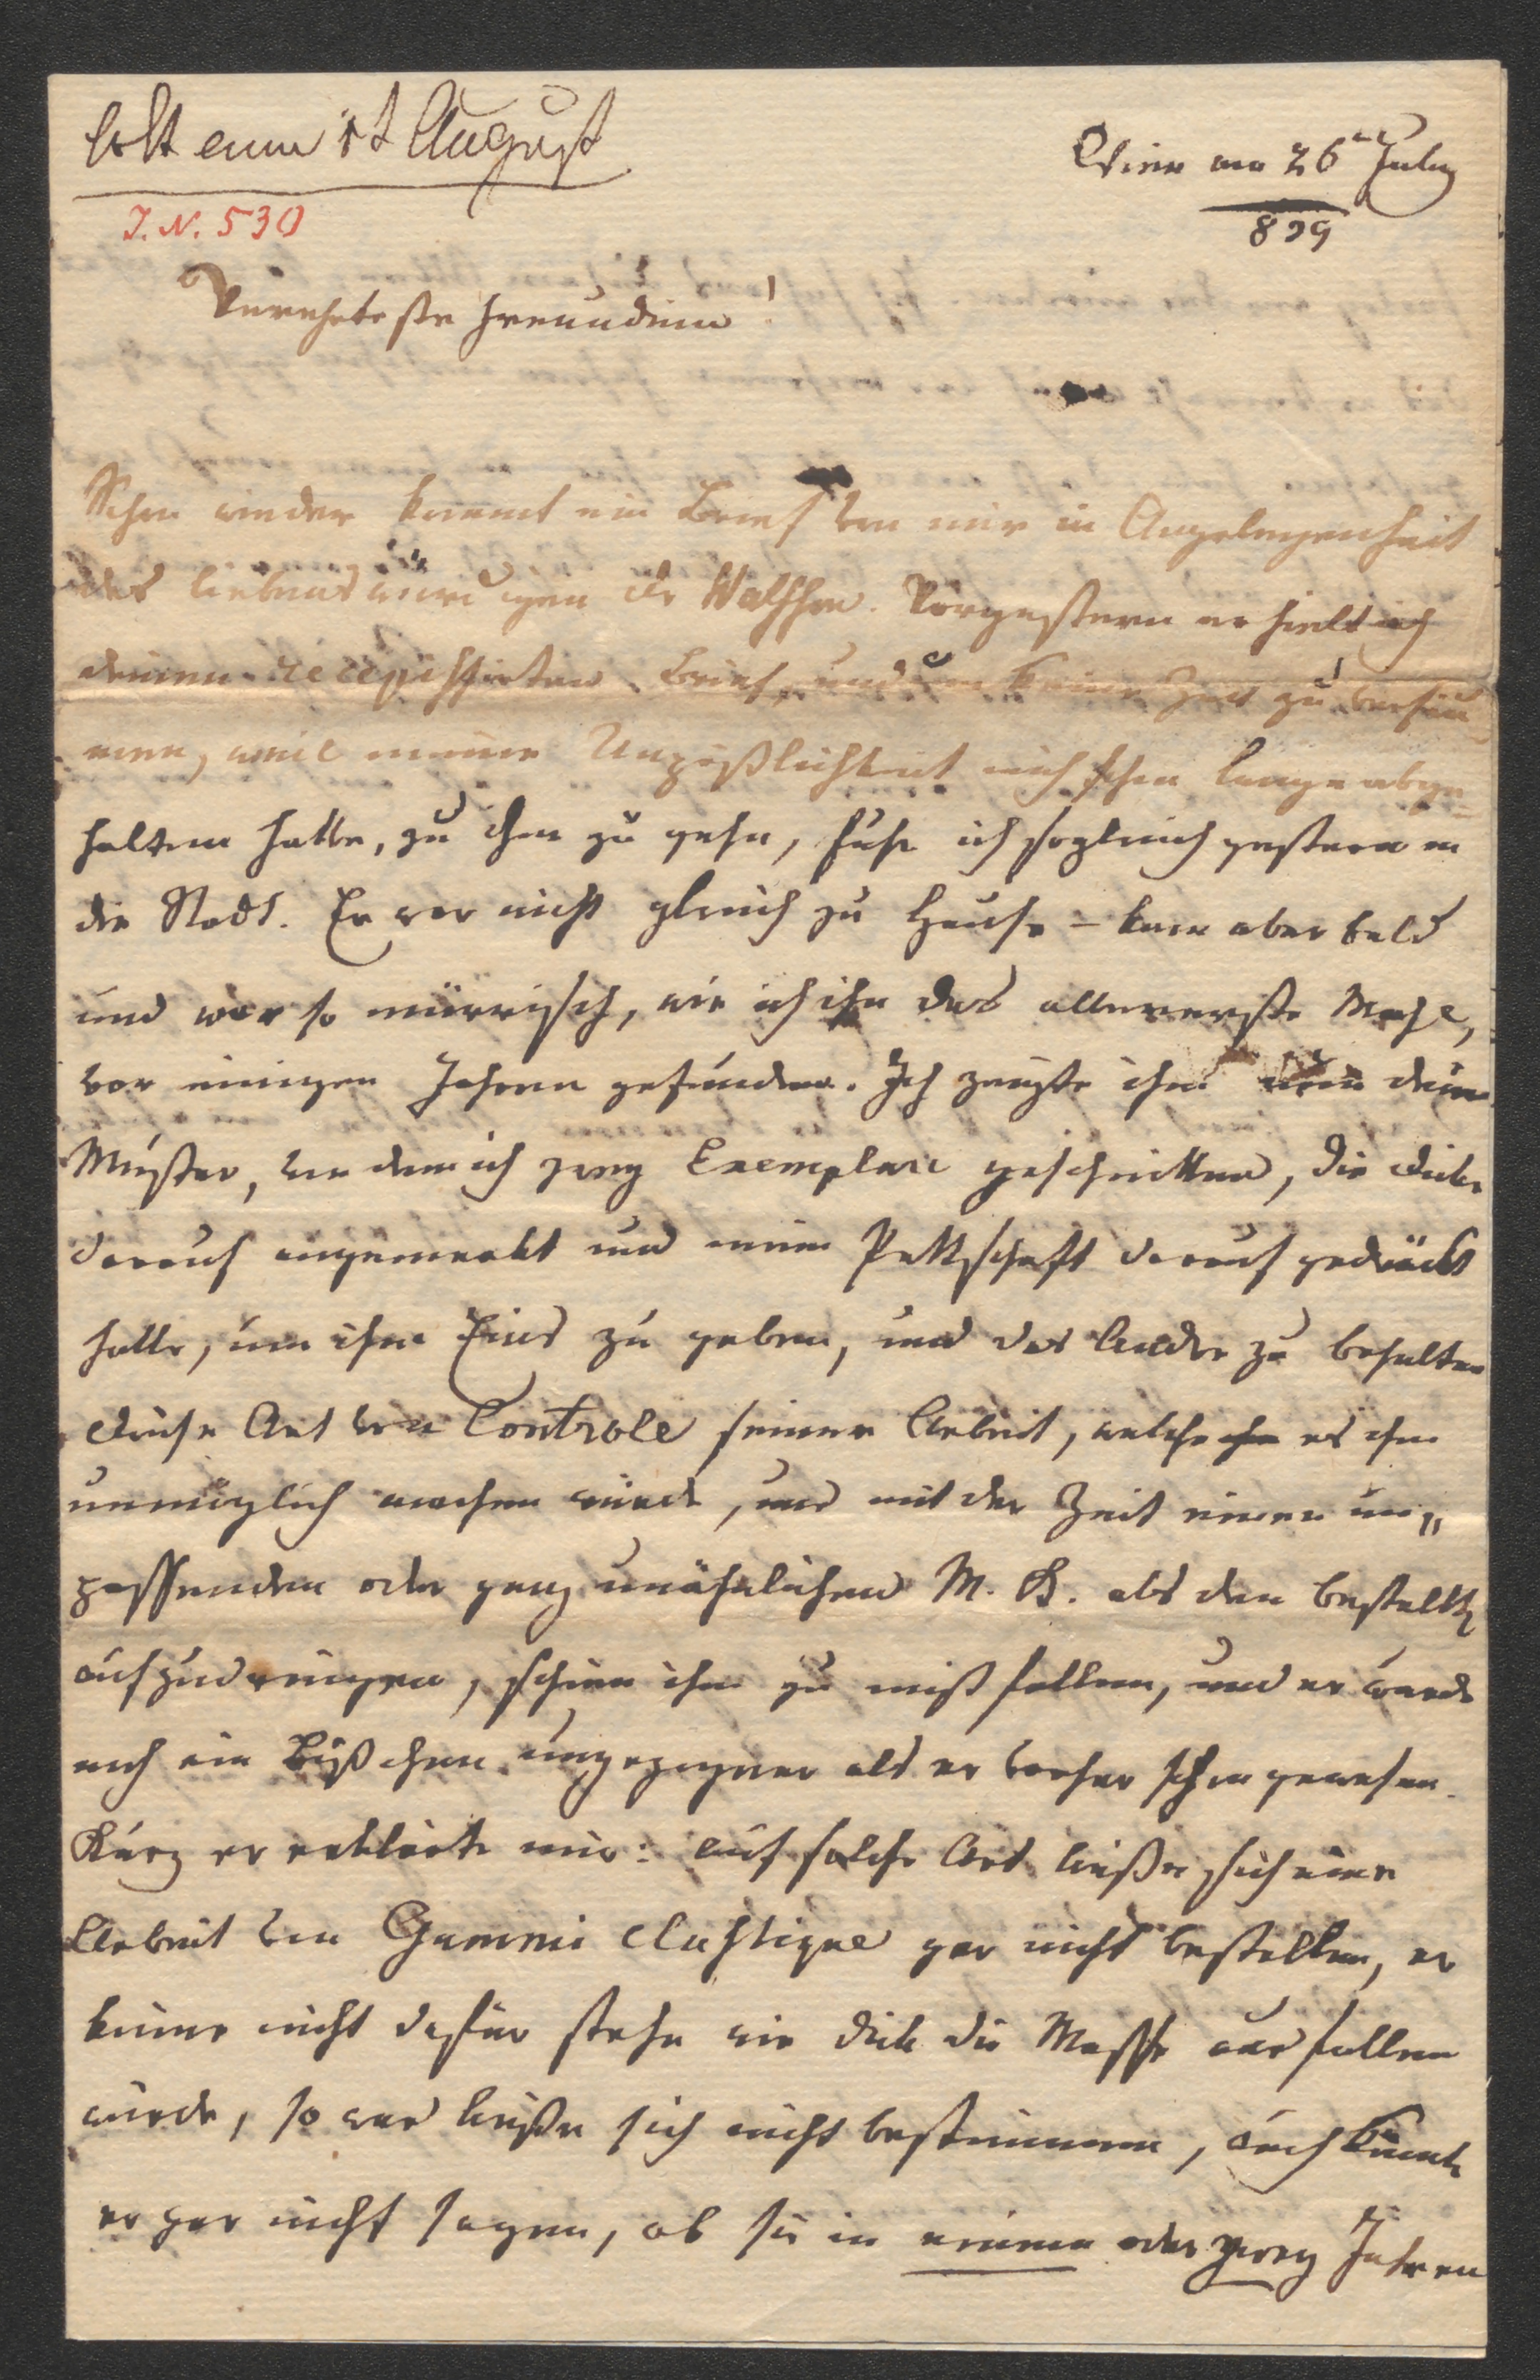 den 1t August
Wien am 26ten July
829
I.N. 530
Verehrteste Freundinn!
Schon wieder kommt ein Brief von mir in Angelegenheit
des liebenswürdigen Dr Wallhon. Vorgestern erhielt ich
deinen recepissirten Brief, und um keine Zeit zu versäu
men, weil meine Unpäßlichkeit mich schon lange abge-
halten hatte, zu ihm zu gehn, fuhr ich sogleich gestern in
die Stadt. Er war nicht gleich zu Hause – kam aber bald
und war so mürrisch, wie ich ihn das allererste Mahl,
vor einigen Jahren gefunden. Ich zeigte ihm nun dein
Muster, von dem ich zwey Exemplare geschnitten, die Dicke
darauf angemerkt und mein Pettschaft darauf gedrückt
hatte, um ihm Eins zu geben, und das Andre zu behalten
Diese Art von Controle seiner Arbeit, welche es ihm
unmöglich machen würde, uns mit der Zeit einen un„
passenden oder ganz unähnlichen M. K. als den bestellten
aufzudringen, schien ihm zu mißfallen, und er wurde
noch ein Bißchen ungezogner als er vorher schon gewesen.
Kurz er erklärte mir: auf solche Art ließe sich eine
Arbeit von Gummi elastique gar nicht bestellen, er
könne nicht dafür stehn wie dick die Masse ausfallen
würde, so was ließe sich nicht bestimmen, auch könnte
er gar nicht sagen, ob sie in einem oder zwey Jahren